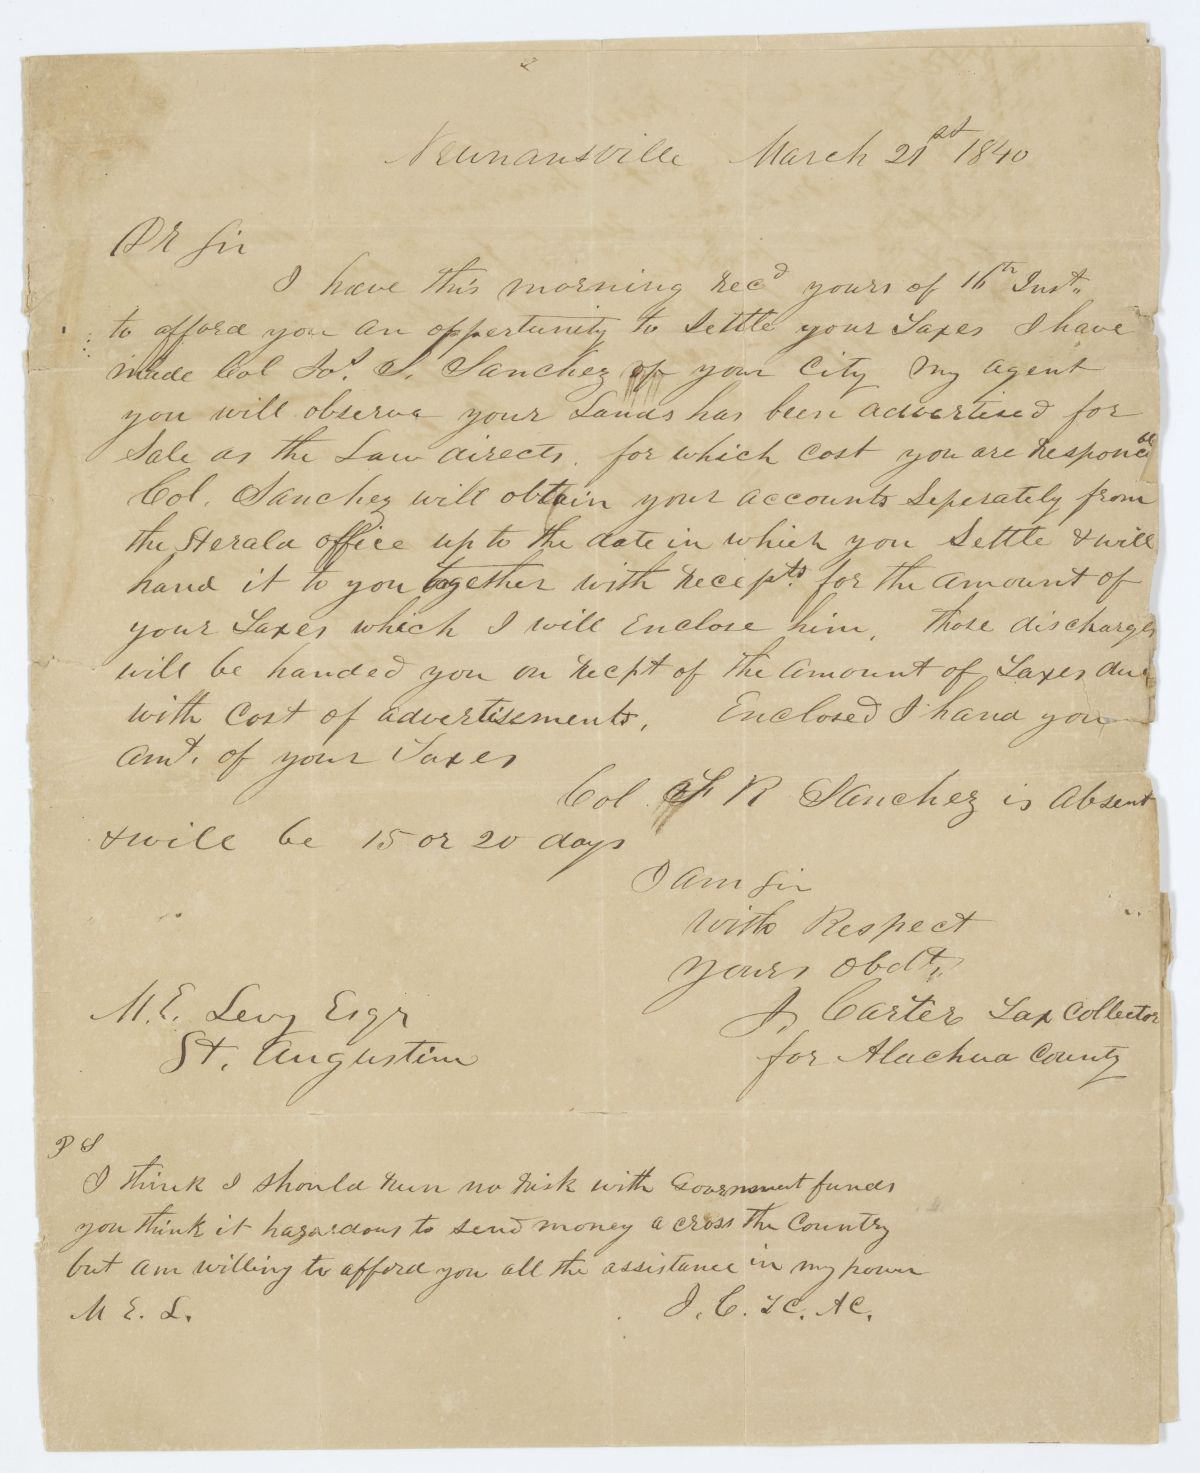 Newnansville March 21st 1840
Dr Sir
I have this morning Recd yours of 16th Inst.
to afford you an opportunity to Settle your Taxes I have
made Col Jos. S. Sanchez of your City my agent
you will observe your Lands has been advertised for
Sale as the Law directs. for which cost you are Responcble
Col. Sanchez will obtain your accounts Seperately from
the Herald office up to the date in which you Settle & will
hand it to you together with Recepts. for the amount of
your Taxes which I will Enclose him. Those discharges
will be handed you on Recpt of the amount of Taxes due
with Cost of advertisements. Enclosed I hand you
Amt. of your Taxes
Col F R Sanchez is absent
& will be 15 or 20 days
I am Sir
With Respect
Yours Obdt.
J. Carter Tax Collector
for Alachua County
M. E. Levy Esqr
St. Augustine
P S
I think I should run no risk with Government funds
you think it hazardous to send money across the Country
but am willing to afford you all the assistance in my power
M E. L. J. C. TC. AC.